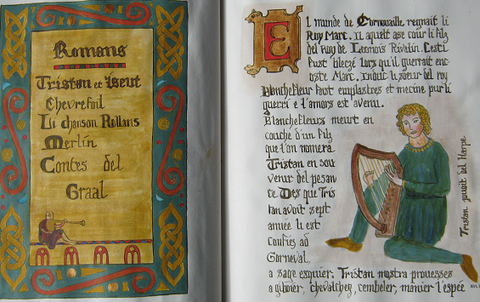 Romans
Tristan et Iseut
Chevrefoil
Li chanson Rollans
Merlin
Contes del
Graal
El munde de Cornouaille regnait li
Roy Marc. Il aquelt ase cour li filz
del roy de Leonois Rivalin. Cesti
fust blecé lors qu'il guerrait en
Marc. la soeur del roy
Blanchefleur fout emplastres et mecine pur li
guerri e l'amors est avenu.
Blanchefleurs meurt en
couche d'un filz
que l'on nomera
Tristan en sou
venir del pesan
te. Des que Tris
tan avoit sept
annee li est
confiés ad
Gorneval
a sage esquier. Tristan mostra prouesses
a chevalchey, cembeler, manier l'espée
Tristan jouoit del Herpe